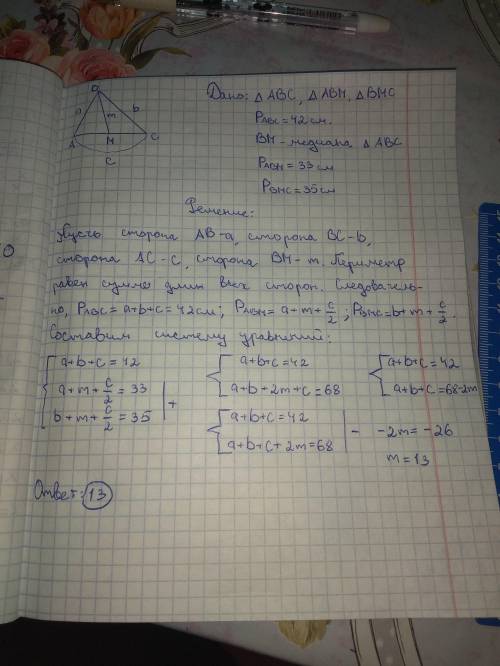 Дано: △ABC, △ABM, △BMC
P_ABC = 42 см.
BM - медиана △ABC
P_ABM = 33 см
P_BMC = 35 см
a
m
b
A
M
C
c
Решение:
Пусть сторона AB - a, сторона BC - b,
сторона AC - C, сторона BM - m. Периметр
равен сумме длин всех сторон. Следователь-
но, P_ABC = a+b+c = 42 см; P_ABM = a+m+c/2; P_BMC = b+m+c/2.
Составим систему уравнений:
{ a+b+c = 42
a+m+c/2 = 33
b+m+c/2 = 35 | +
{ a+b+c = 42
a+b+2m+c = 68
{ a+b+c = 42
a+b+c = 68-2m
{ a+b+c = 42
a+b+c+2m = 68 | -
-2m = -26
m = 13
Ответ: 13